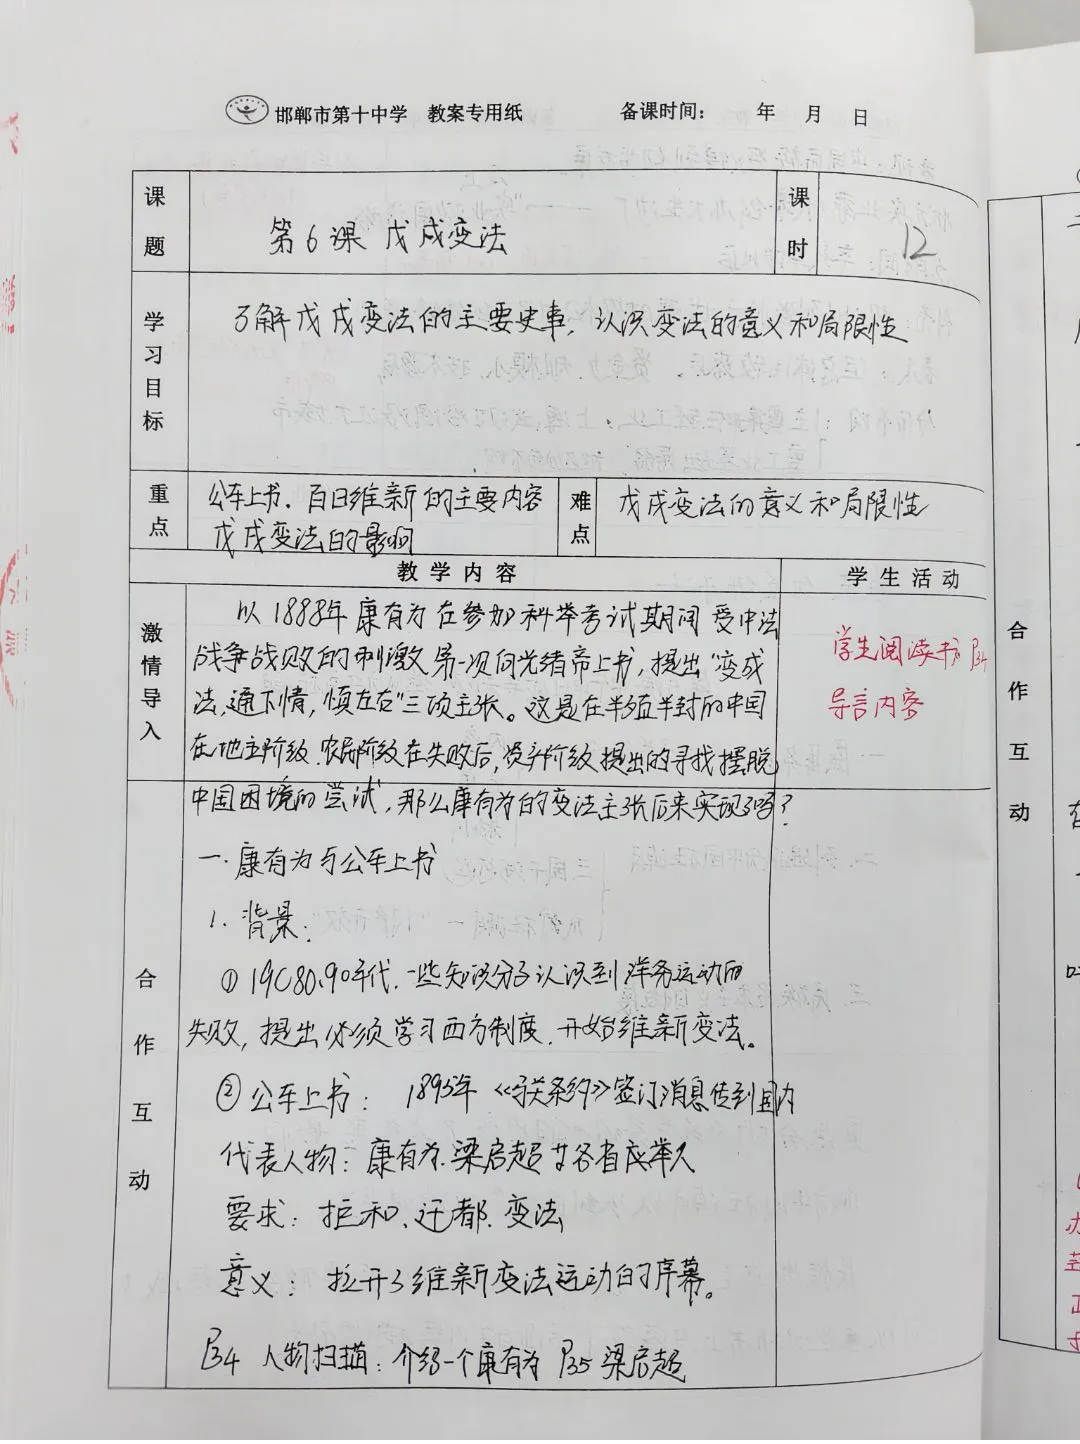 邯郸市第十中学 教案专用纸 备课时间： 年 月 日
课题
第6课 戊戌变法
课时
12
学习目标
了解戊戌变法的主要史事，认识变法的意义和局限性
重点
公车上书、百日维新的主要内容
戊戌变法的影响
难点
戊戌变法的意义和局限性
教学内容
学生活动
激情导入
以1888年康有为在参加科举考试期间受中法
战争战败的刺激，第一次向光绪帝上书，提出"变成
法，通下情，慎左右"三项主张。这是在半殖半封的中国
在地主阶级、农民阶级在失败后，资产阶级提出的寻找摆脱
中国困境的尝试，那么康有为的变法主张后来实现了吗？
学生阅读书P34
导言内容
合作互动
一、康有为与公车上书
1. 背景：
① 19C80、90年代，一些知识分子认识到洋务运动的
失败，提出必须学习西方制度，开始维新变法。
② 公车上书： 1895年《马关条约》签订消息传到国内
代表人物：康有为、梁启超廿各省应举人
要求：拒和、迁都、变法
意义：拉开了维新变法运动的序幕。
P34 人物扫描：介绍一个康有为 P35 梁启超
合作互动